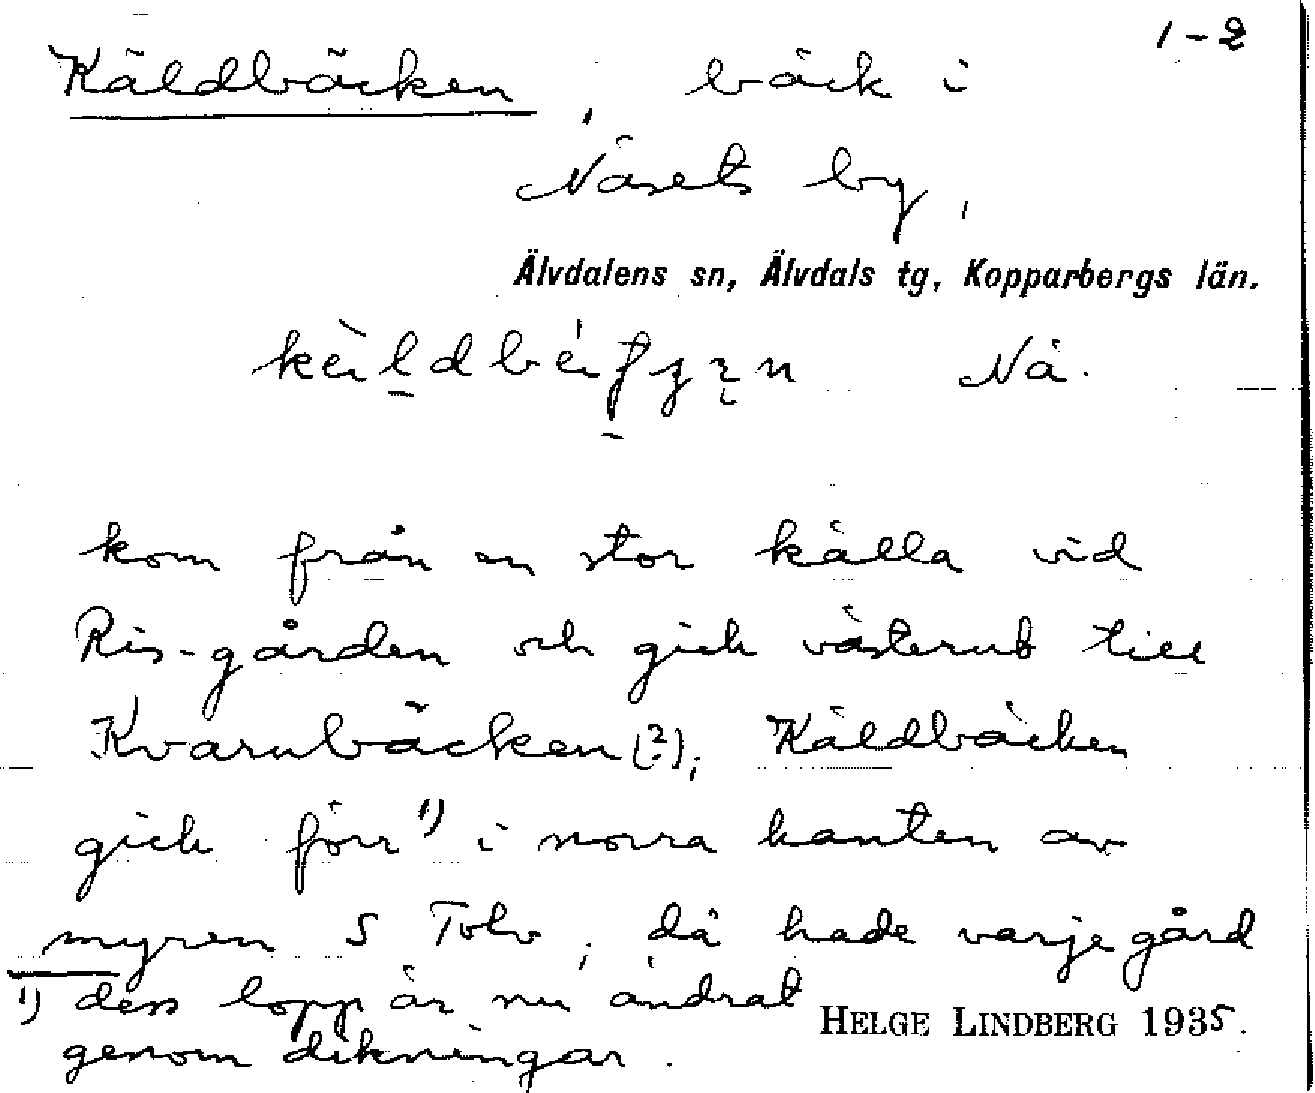 1-2
Käldbäcken, bäck i
Näsets by,
Älvdalens sn, Älvdals tg, Kopparbergs län.
Nä.
kom från en stor källa vid
Ris-gården och gick västerut till
Kvarnbäcken (?), Käldbäcken
gick förr 1) i norra kanten av
myren S Tolv, då hade varje gård
1) dess lopp är nu ändrat
genom dikningar.
HELGE LINDBERG 1935.